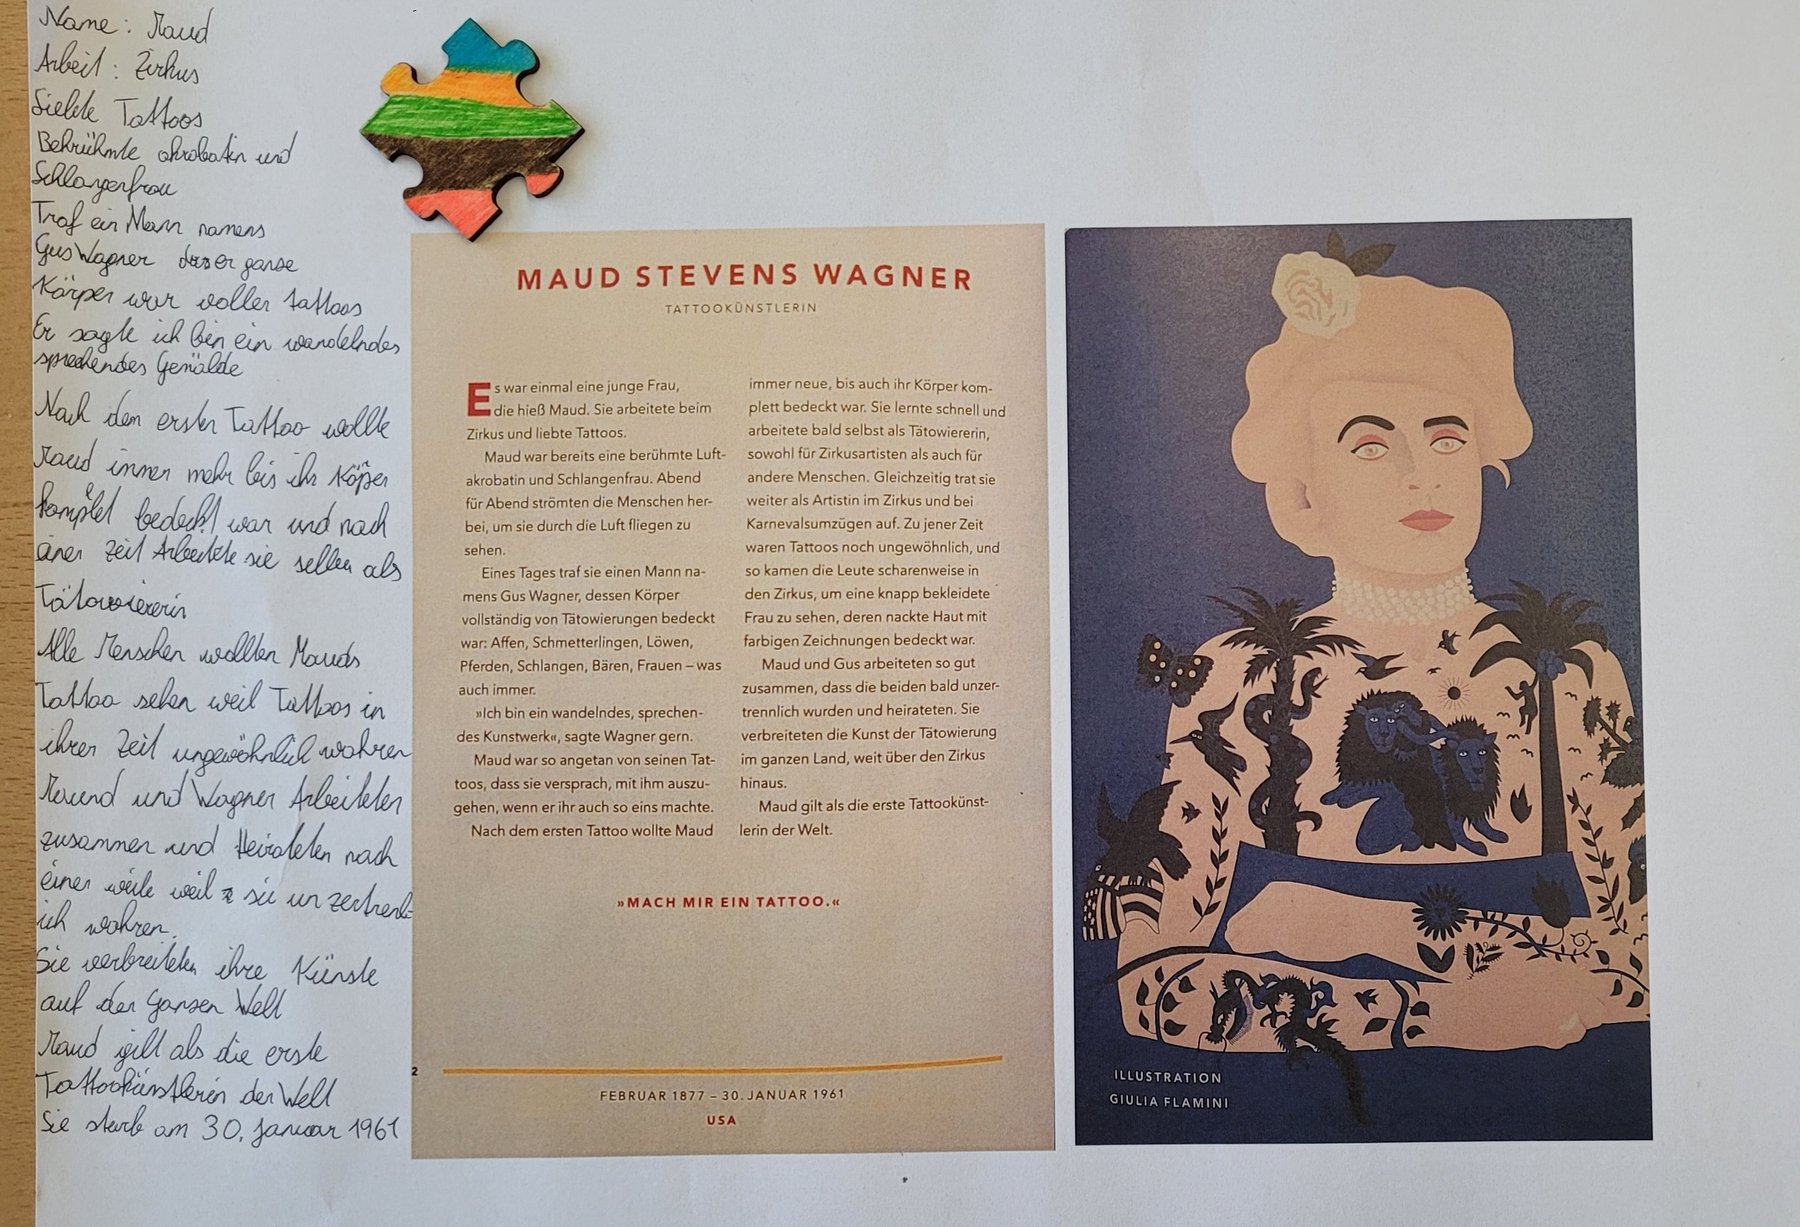 Name: Maud
Arbeit: Zirkus
Liebte Tattoos
Bekrühmte akrobatin und
Schlangenfrau
Traf ein Mann namens
Gus Wagner dessen ganse
Körper war voller tattoos
Er sagte ich bin ein wandelndes
sprechendes Gemälde
Nach dem ersten Tattoo wollte
Maud immer mehr bis ihr Köper
komplet bedeckt war und nach
einer Zeit Arbeitete sie selben als
Tätowiererin
Alle Menschen wollten Mauds
Tattoo sehen weil Tattoos in
ihrer Zeit ungewöhnlich wahren
Maund und Wagner Arbeiteten
zusammen und Heirateten nach
einer weile weil sie un zertrenl-
ich wahren.
Sie verbreiteten ihre Künste
auf der Gansen Welt
Maud gilt als die erste
Tattookünstlerin der Welt
Sie starb am 30. Januar 1961
MAUD STEVENS WAGNER
TATTOOKÜNSTLERIN
Es war einmal eine junge Frau,
die hieß Maud. Sie arbeitete beim
Zirkus und liebte Tattoos.
Maud war bereits eine berühmte Luft-
akrobatin und Schlangenfrau. Abend
für Abend strömten die Menschen her-
bei, um sie durch die Luft fliegen zu
sehen.
Eines Tages traf sie einen Mann na-
mens Gus Wagner, dessen Körper
vollständig von Tätowierungen bedeckt
war: Affen, Schmetterlingen, Löwen,
Pferden, Schlangen, Bären, Frauen – was
auch immer.
»Ich bin ein wandelndes, sprechen-
des Kunstwerk«, sagte Wagner gern.
Maud war so angetan von seinen Tat-
toos, dass sie versprach, mit ihm auszu-
gehen, wenn er ihr auch so eins machte.
Nach dem ersten Tattoo wollte Maud
immer neue, bis auch ihr Körper kom-
plett bedeckt war. Sie lernte schnell und
arbeitete bald selbst als Tätowiererin,
sowohl für Zirkusartisten als auch für
andere Menschen. Gleichzeitig trat sie
weiter als Artistin im Zirkus und bei
Karnevalsumzügen auf. Zu jener Zeit
waren Tattoos noch ungewöhnlich, und
so kamen die Leute scharenweise in
den Zirkus, um eine knapp bekleidete
Frau zu sehen, deren nackte Haut mit
farbigen Zeichnungen bedeckt war.
Maud und Gus arbeiteten so gut
zusammen, dass die beiden bald unzer-
trennlich wurden und heirateten. Sie
verbreiteten die Kunst der Tätowierung
im ganzen Land, weit über den Zirkus
hinaus.
Maud gilt als die erste Tattookünst-
lerin der Welt.
»MACH MIR EIN TATTOO.«
2
FEBRUAR 1877 – 30. JANUAR 1961
USA
ILLUSTRATION
GIULIA FLAMINI